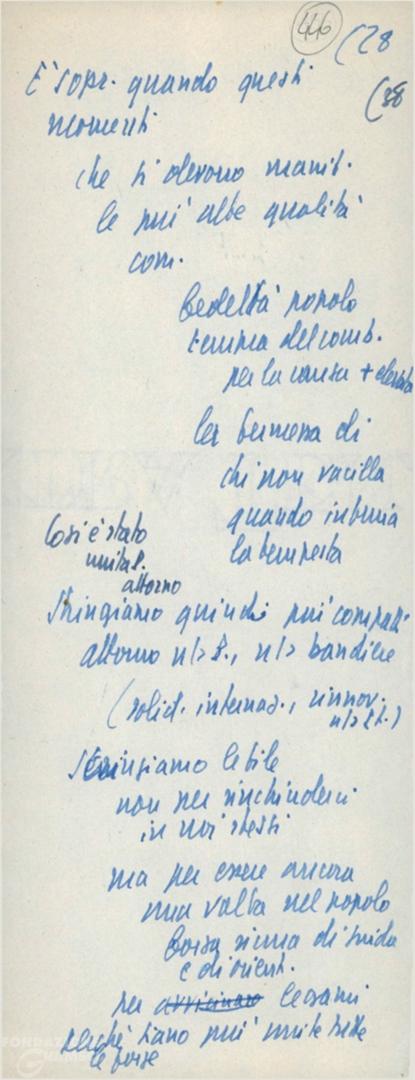 446
(28
(38
È sopr. quando questi
momenti
che si devono manif.
le più alte qualità
com.
fedeltà popolo
tempra del comb.
per la causa + elevata
la fermezza di
chi non vacilla
quando infuria
la tempesta
Così è stato
unità P.
attorno
Stringiamo quindi più compatti
attorno n/ P., n/ bandiere
(solid. internaz., rinnov.
Stringiamo le file
non per rinchiuderci
in noi stessi
ma per essere ancora
una volta nel popolo
forza sicura di guida
e di orient.
per avvicinare legami
perché siano più unite tutte
le forze
FONDAZ
GRAMSCI